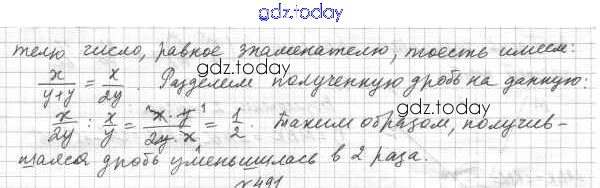 gdz.today
телю число, равное знаменателю, тоесть имеем:
x/(y+y) = x/2y. Разделим полученную дробь на данную:
gdz.today
x/2y : x/y = x·y/2y·x = 1/2. Таким образом, получив-
gdz.today
шаяся дробь уменьшилась в 2 раза.
№491